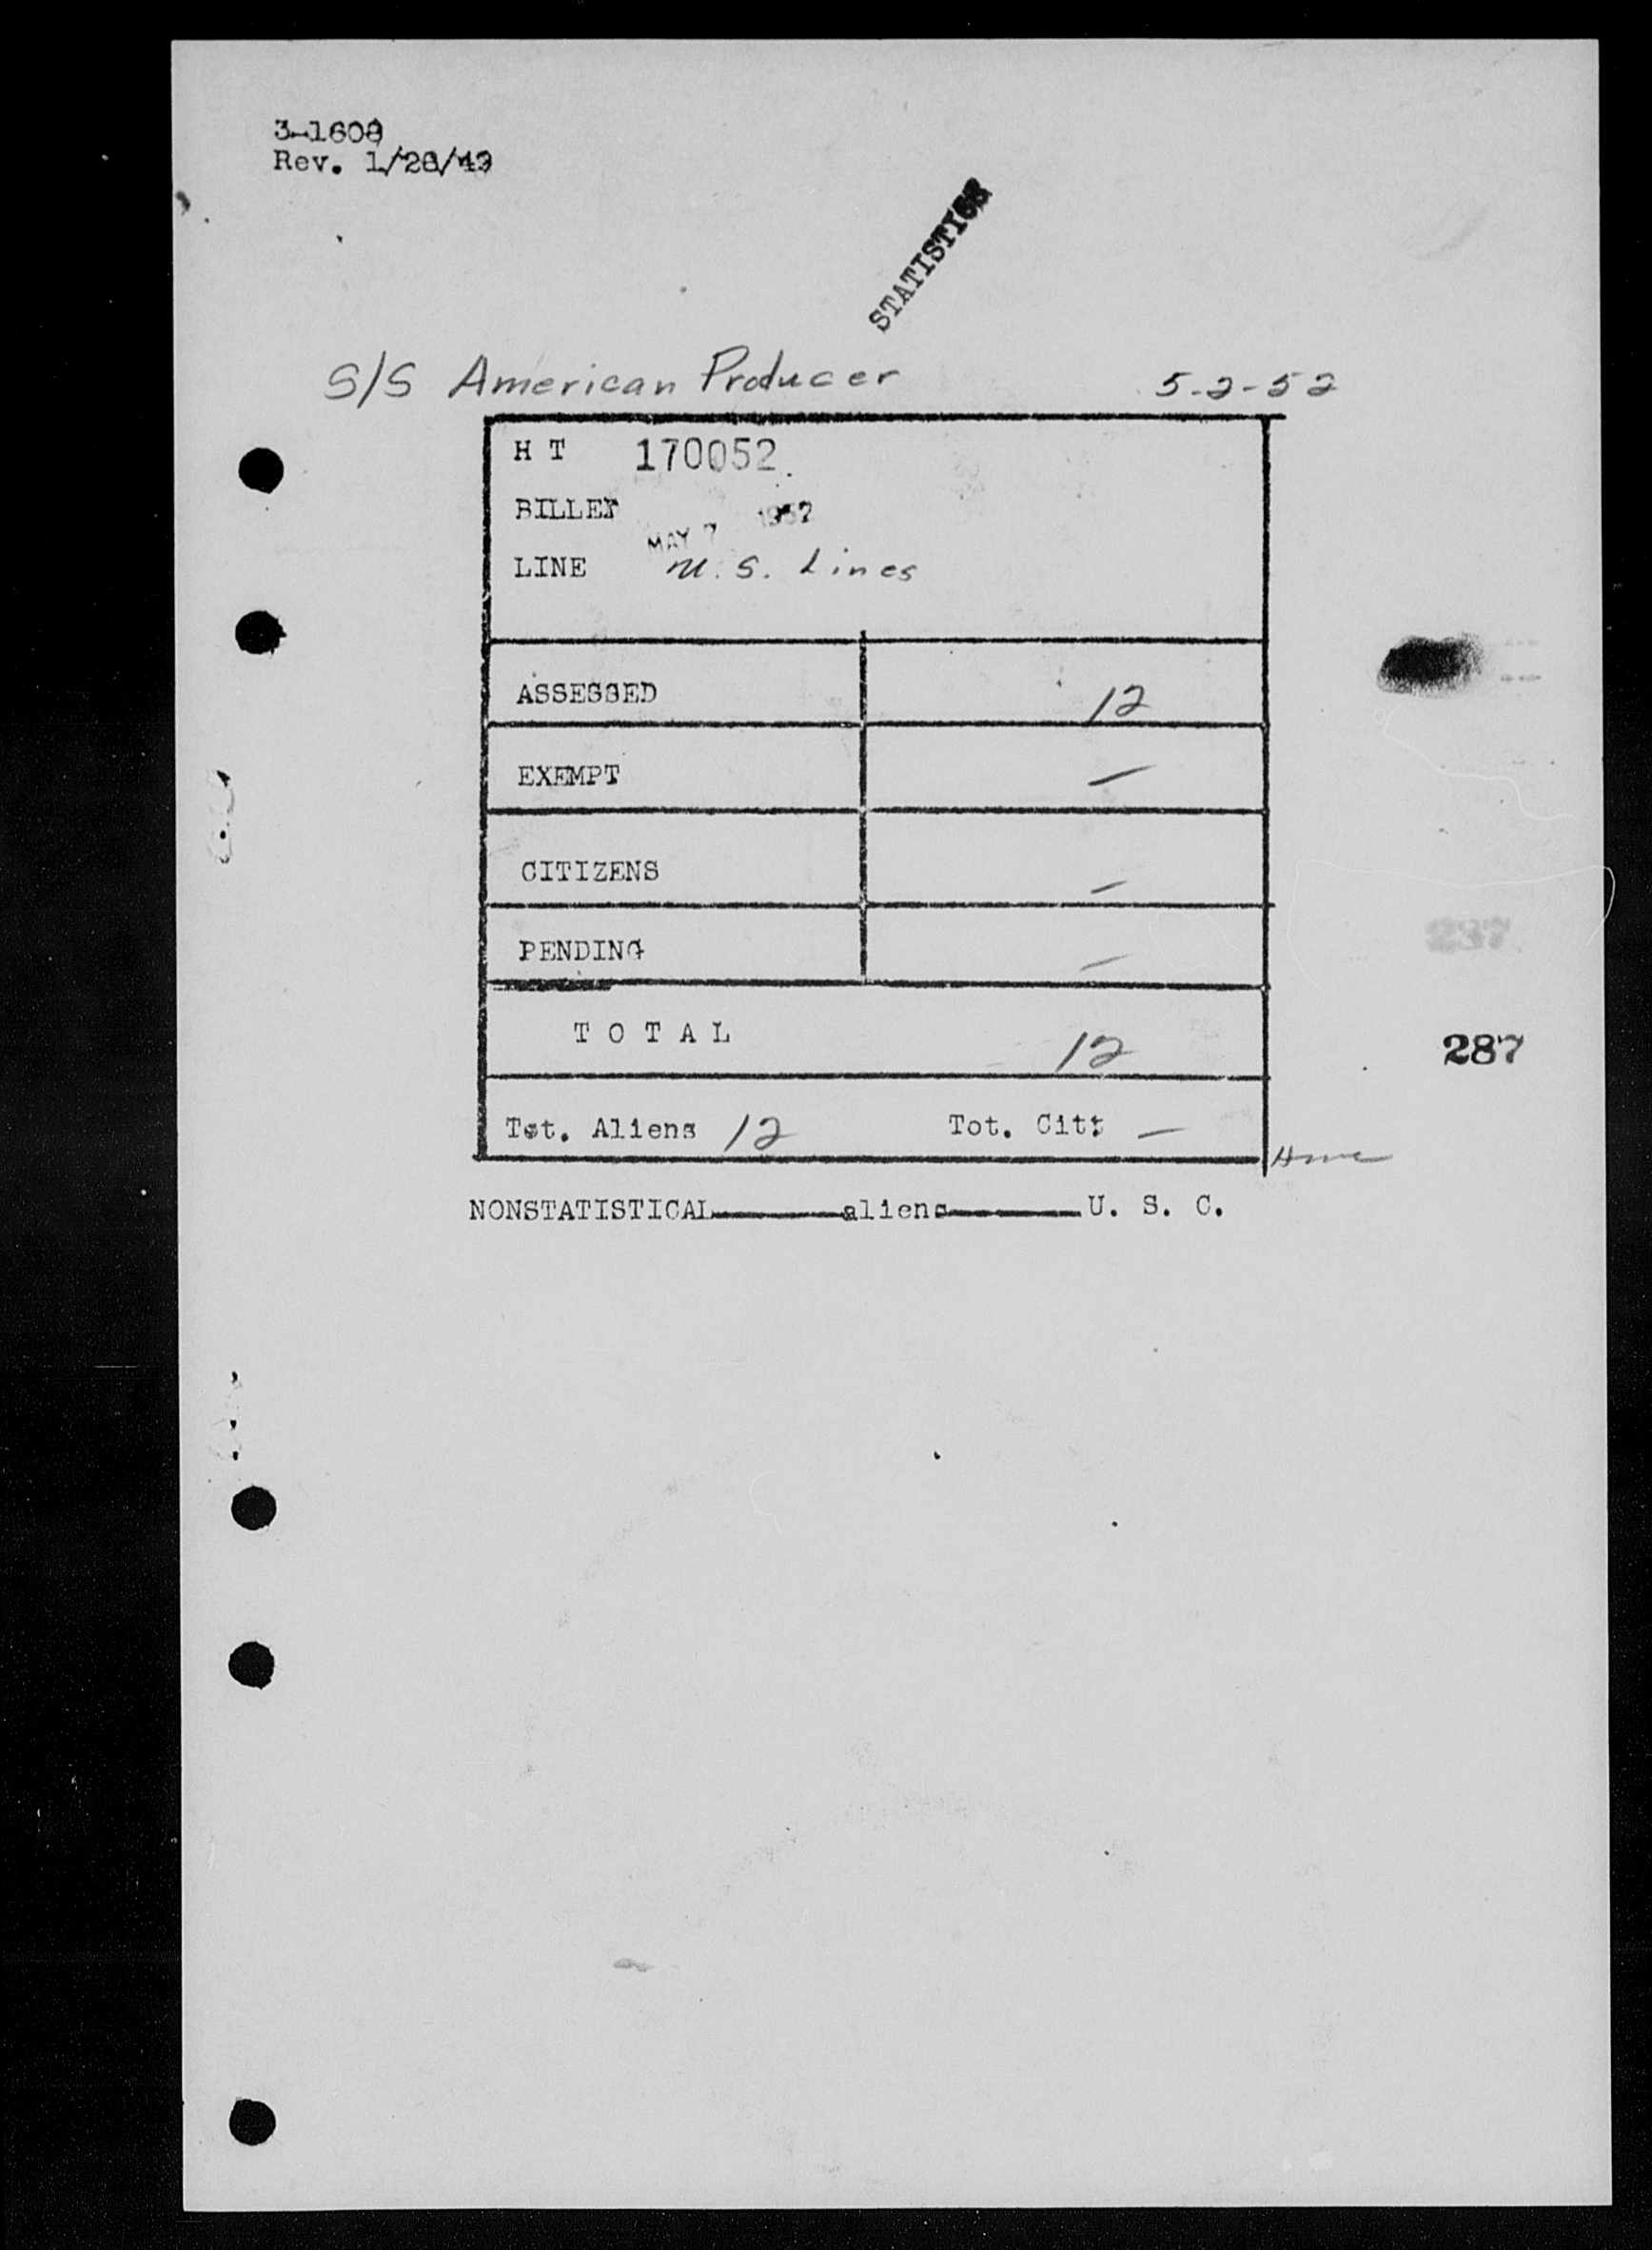 3-1608
Rev. 1/28/49
STATISTICS
S/S American Producer 5-2-52
H T 170052
BILLET
MAY 7 1952
LINE U. S. Lines
ASSESSED 12
EXEMPT —
CITIZENS —
PENDING —
237
T O T A L 12
287
Tot. Aliens 12 Tot. Cit: —
NONSTATISTICAL aliens U. S. C.